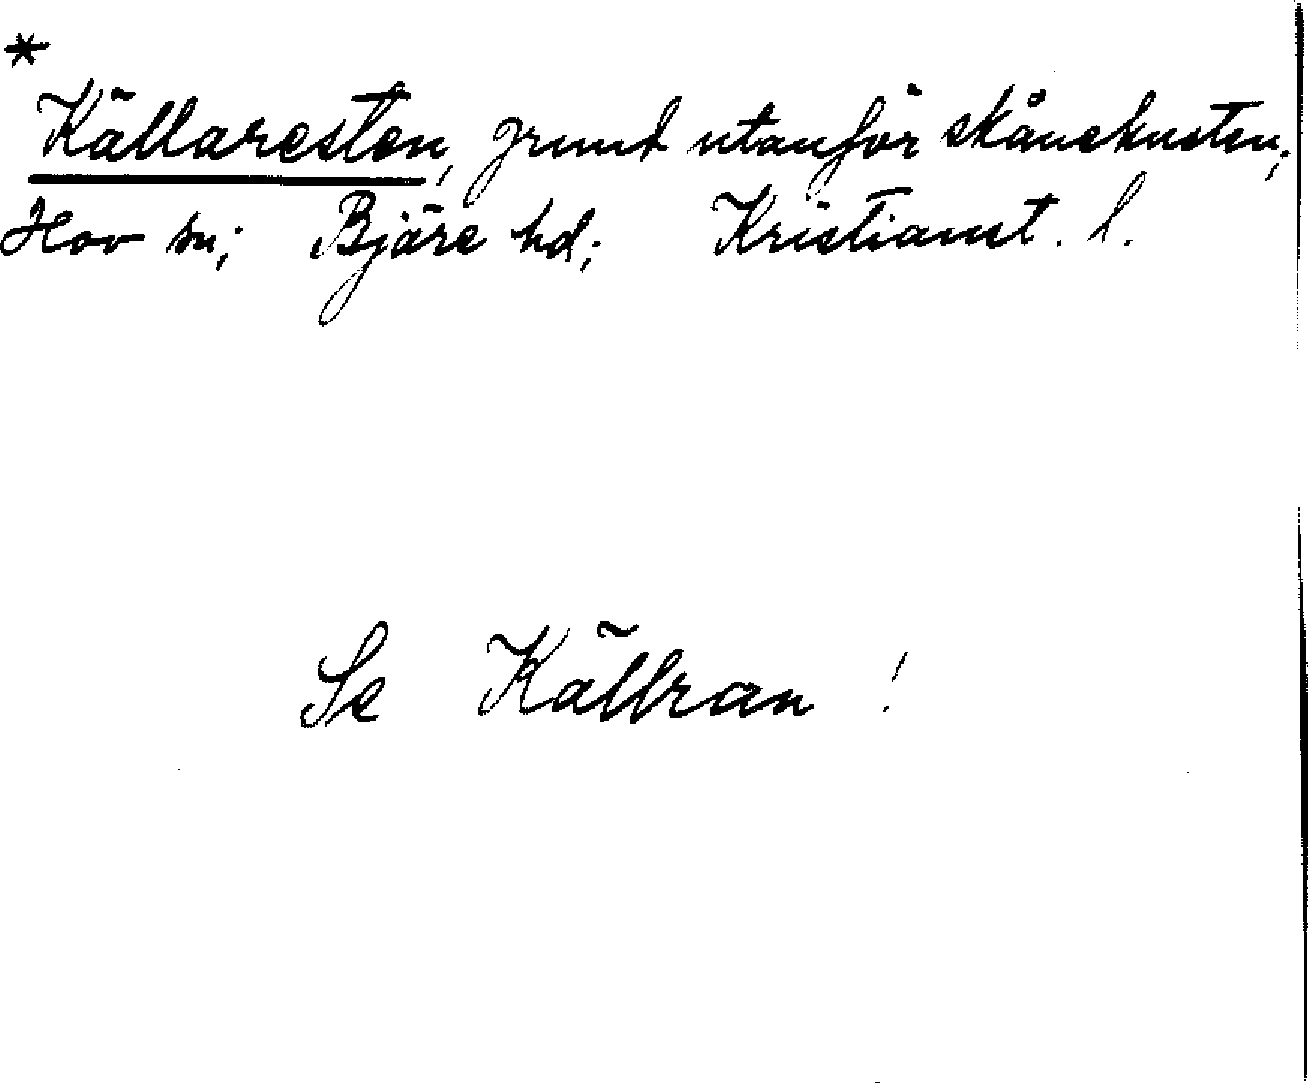 *
Källaresten, grund utanför skånekusten;
Hov sn; Bjäre hd; Kristianst. l.
Se Källran !